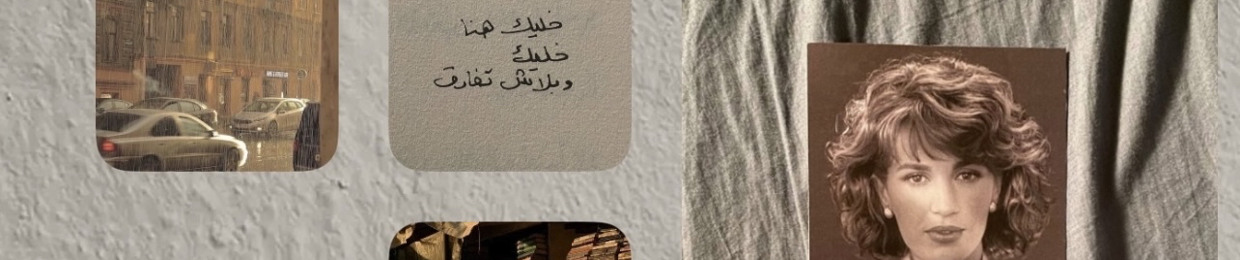 خليك هنا
خليك
وبلاش تفارق